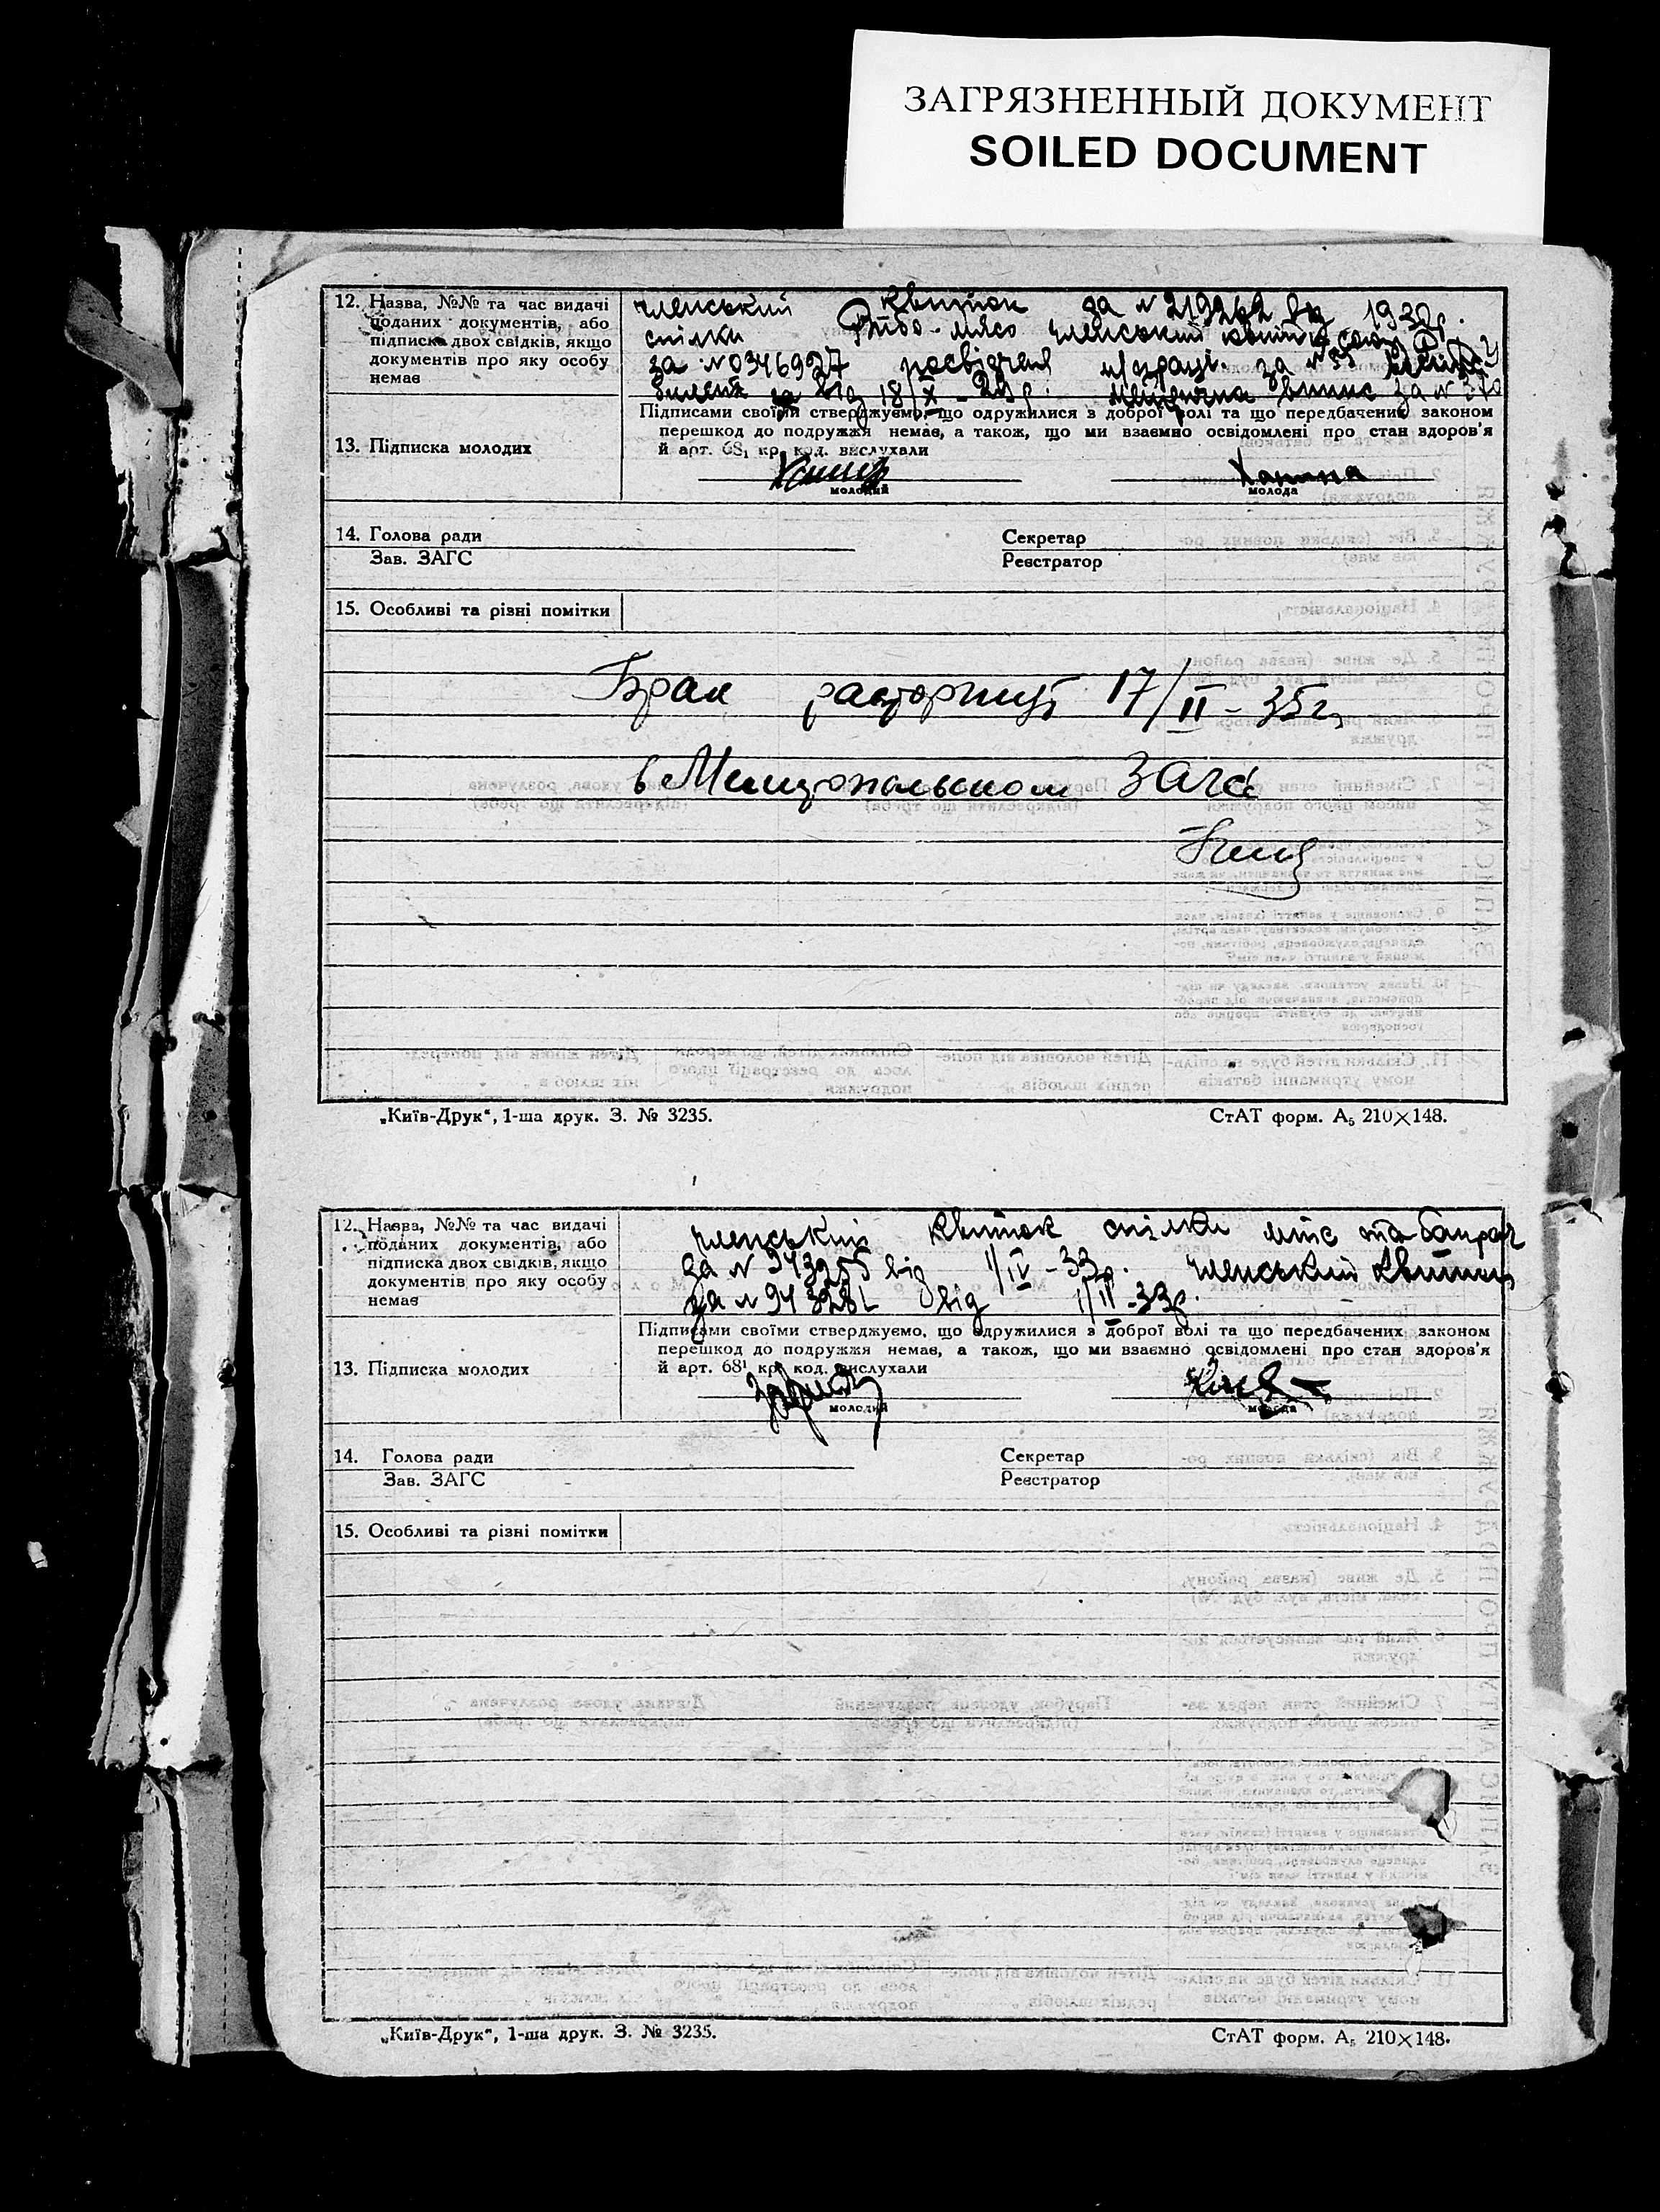 ЗАГРЯЗНЕННЫЙ ДОКУМЕНТ
SOILED DOCUMENT
12. Назва, №№ та час видачі
поданих документів, або
підписка двох свідків, якщо
документів про яку особу
немає
членський квиток за № 219262 від 1932р.
спілки Рибо-мясо членський квиток
за № 0346927 посвідчення за №
білет від 18/X - 29р. за №
13. Підписка молодих
Підписами своїми стверджуємо, що одружилися з доброї волі та що передбачених законом
перешкод до подружжя немає, а також, що ми взаємно освідомлені про стан здоров'я
й арт. 68₁ кр. код. вислухали
молодий
молода
14. Голова ради
Зав. ЗАГС
Секретар
Реєстратор
15. Особливі та різні помітки
Брак расторгнут 17/II - 35 г.
в Загсе
„Київ-Друк“, 1-ша друк. З. № 3235.
СтАТ форм. А₅ 210×148.
12. Назва, №№ та час видачі
поданих документів, або
підписка двох свідків, якщо
документів про яку особу
немає
членський квиток спілки
за № 943255 від 1/IV - 33р. членський квиток
за № 943281 від 1/II - 33р.
13. Підписка молодих
Підписами своїми стверджуємо, що одружилися з доброї волі та що передбачених законом
перешкод до подружжя немає, а також, що ми взаємно освідомлені про стан здоров'я
й арт. 68¹ кр. код. вислухали
молодий
молода
14. Голова ради
Зав. ЗАГС
Секретар
Реєстратор
15. Особливі та різні помітки
„Київ-Друк“, 1-ша друк. З. № 3235.
СтАТ форм. А₅ 210×148.